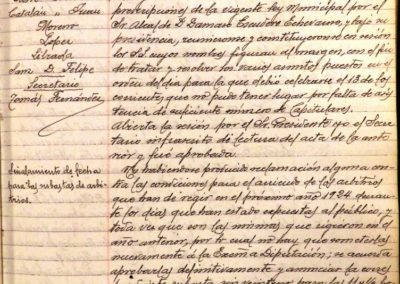 Catalán " Juan
Moreno
López
Losada
Sam. D. Felipe
Secretario
Tomás Fernández
prescripciones de la vigente ley Municipal por el
Sr. Alcalde D. Damaso Escudero Echevarne, y bajo su
presidencia, reuniéronse y constituyeronse en sesión
los Sres cuyos nombres figuran al margen, con el fin
de tratar y resolver los varios asuntos puestos en el
orden del día para la que debió celebrarse el 13 de los
corrientes, que no pudo tener lugar por falta de asis
tencia de suficiente número de Capitulares.
Abierta la sesión por el Sr. Presidente yo el Secre
tario infrascrito dí lectura del acta de la ante
rior y fué aprobada.
Señalamiento de fecha
para las subastas de arbi
trios.
No habiéndose producido reclamación alguna con
tra las condiciones para el arriendo de los arbitrios
que han de regir en el próximo año 1924 duran
te los días que han estado expuestas al público, y
toda vez que son las mismas que rigieron en el
año anterior, por lo cual no hay que someterlas
nuevamente á la Excma Diputación; se acuerda
aprobarlas definitivamente y anunciar la corres
para los 11 y